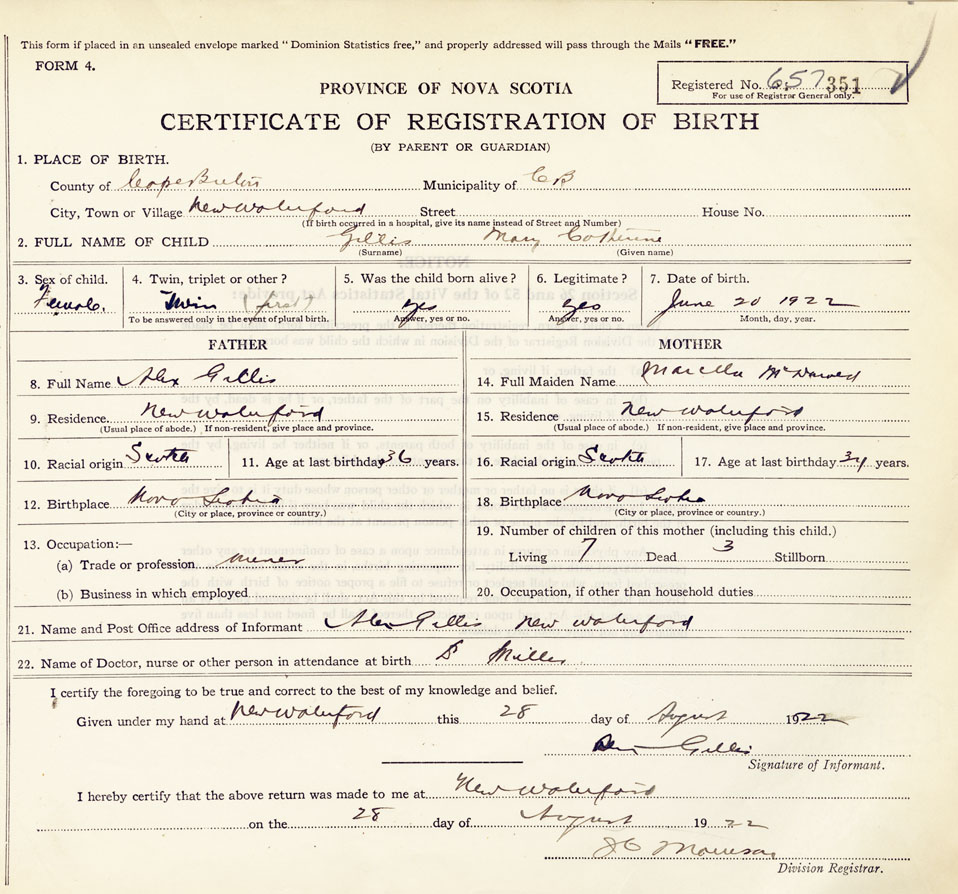 This form if placed in an unsealed envelope marked "Dominion Statistics free," and properly addressed will pass through the Mails "FREE."
FORM 4.
PROVINCE OF NOVA SCOTIA
Registered No. 657 351
For use of Registrar General only.
CERTIFICATE OF REGISTRATION OF BIRTH
(BY PARENT OR GUARDIAN)
1. PLACE OF BIRTH.
County of Cape Breton Municipality of C B
City, Town or Village New Waterford Street House No.
(If birth occurred in a hospital, give its name instead of Street and Number)
2. FULL NAME OF CHILD Gillis Mary Catherine
(Surname) (Given name)
3. Sex of child. 4. Twin, triplet or other? 5. Was the child born alive? 6. Legitimate? 7. Date of birth.
Female. Twin (first) Yes Yes June 20 1922
To be answered only in the event of plural birth. Answer, yes or no. Answer, yes or no. Month, day, year.
FATHER MOTHER
8. Full Name Alex Gillis 14. Full Maiden Name Marcella
9. Residence New Waterford 15. Residence New Waterford
(Usual place of abode.) If non-resident, give place and province. (Usual place of abode.) If non-resident, give place and province.
10. Racial origin Scotch 11. Age at last birthday 36 years. 16. Racial origin Scotch 17. Age at last birthday years.
12. Birthplace Nova Scotia 18. Birthplace Nova Scotia
(City or place, province or country.) (City or place, province or country.)
13. Occupation:— 19. Number of children of this mother (including this child.)
(a) Trade or profession miner Living 7 Dead 3 Stillborn
(b) Business in which employed 20. Occupation, if other than household duties
21. Name and Post Office address of Informant Alex Gillis New Waterford
22. Name of Doctor, nurse or other person in attendance at birth Miller
I certify the foregoing to be true and correct to the best of my knowledge and belief.
Given under my hand at New Waterford this 28 day of August 1922
Alex Gillis
Signature of Informant.
I hereby certify that the above return was made to me at New Waterford
on the 28 day of August 1922
Morrison
Division Registrar.